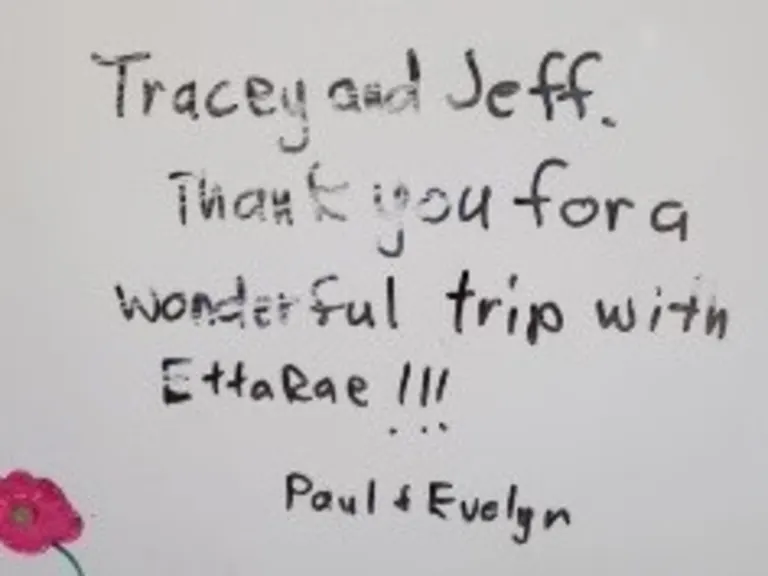 Tracey and Jeff.
Thank you for a
wonderful trip with
EttaRae !!!
Paul & Evelyn